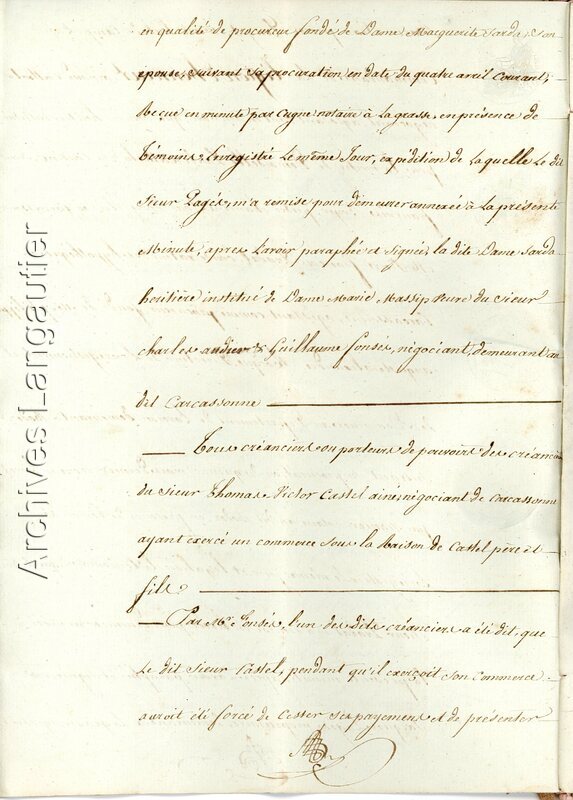 en qualité de procureur fondé de Dame Marguerite Sarda, Son
épouse, suivant sa procuration en date du quatre avril courant,
Reçue en minute par Cugne notaire à Lagrasse, en présence de
témoins, Enregistré le même Jour, expédition de laquelle le dit
Sieur Pagés, m'a remise pour demeurer annexée à la présente
Minute, apres l'avoir paraphée et signée, la dite Dame Sarda
heritière institué de Dame Marie Massip veuve du sieur
charles andier & Guillaume fonsés, négociant, demeurant au
dit Carcassonne
Tous créanciers ou porteurs de pouvoirs des créanciers
du sieur Thomas Victor Castel ainé, négociant de Carcassonne
ayant exercé un commerce sous la Raison de Castel père et
fils
Par Mr. fonsés, l'un des dits créanciers a été dit, que
Le dit Sieur Castel, pendant qu'il exerçoit son commerce
auroit été forcé de Cesser ses payemens et de présenter
Archives Langautier